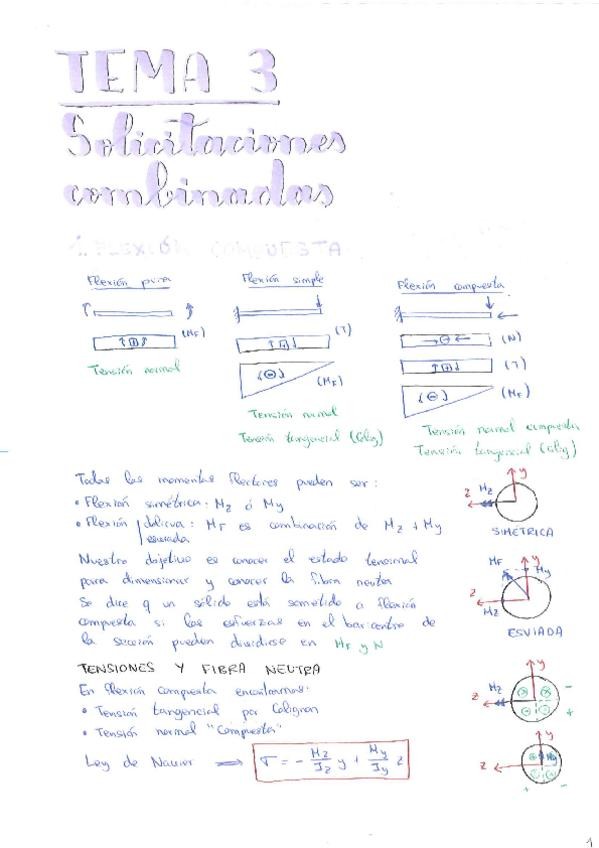 TEMA 3
Solicitaciones
combinadas
1. FLEXIÓN COMPUESTA
Flexión pura
Flexión simple
Flexión compuesta
(MF)
(T)
(N)
(T)
(MF)
(MF)
Tensión normal
Tensión normal
Tensión tangencial (Colig)
Tensión normal compuesta
Tensión tangencial (Colig)
Todos los momentos flectores pueden ser:
• Flexión simétrica: Mz ó My
• Flexión oblicua: MF es combinación de Mz + My
esviada
Nuestro objetivo es conocer el estado tensional
para dimensionar y conocer la fibra neutra
Se dice q un sólido está sometido a flexión
compuesta si los esfuerzos en el baricentro de
la sección pueden dividirse en MF y N
y
Mz
z
SIMÉTRICA
MF
y
My
z
Mz
ESVIADA
TENSIONES Y FIBRA NEUTRA
En flexión compuesta encontramos:
• Tensión tangencial por Colignon
• Tensión normal "Compuesta"
Ley de Navier ⟹ σ = - Mz/Iz y + My/Iy z
y
Mz
z
-
+
y
My
z
+ -
1